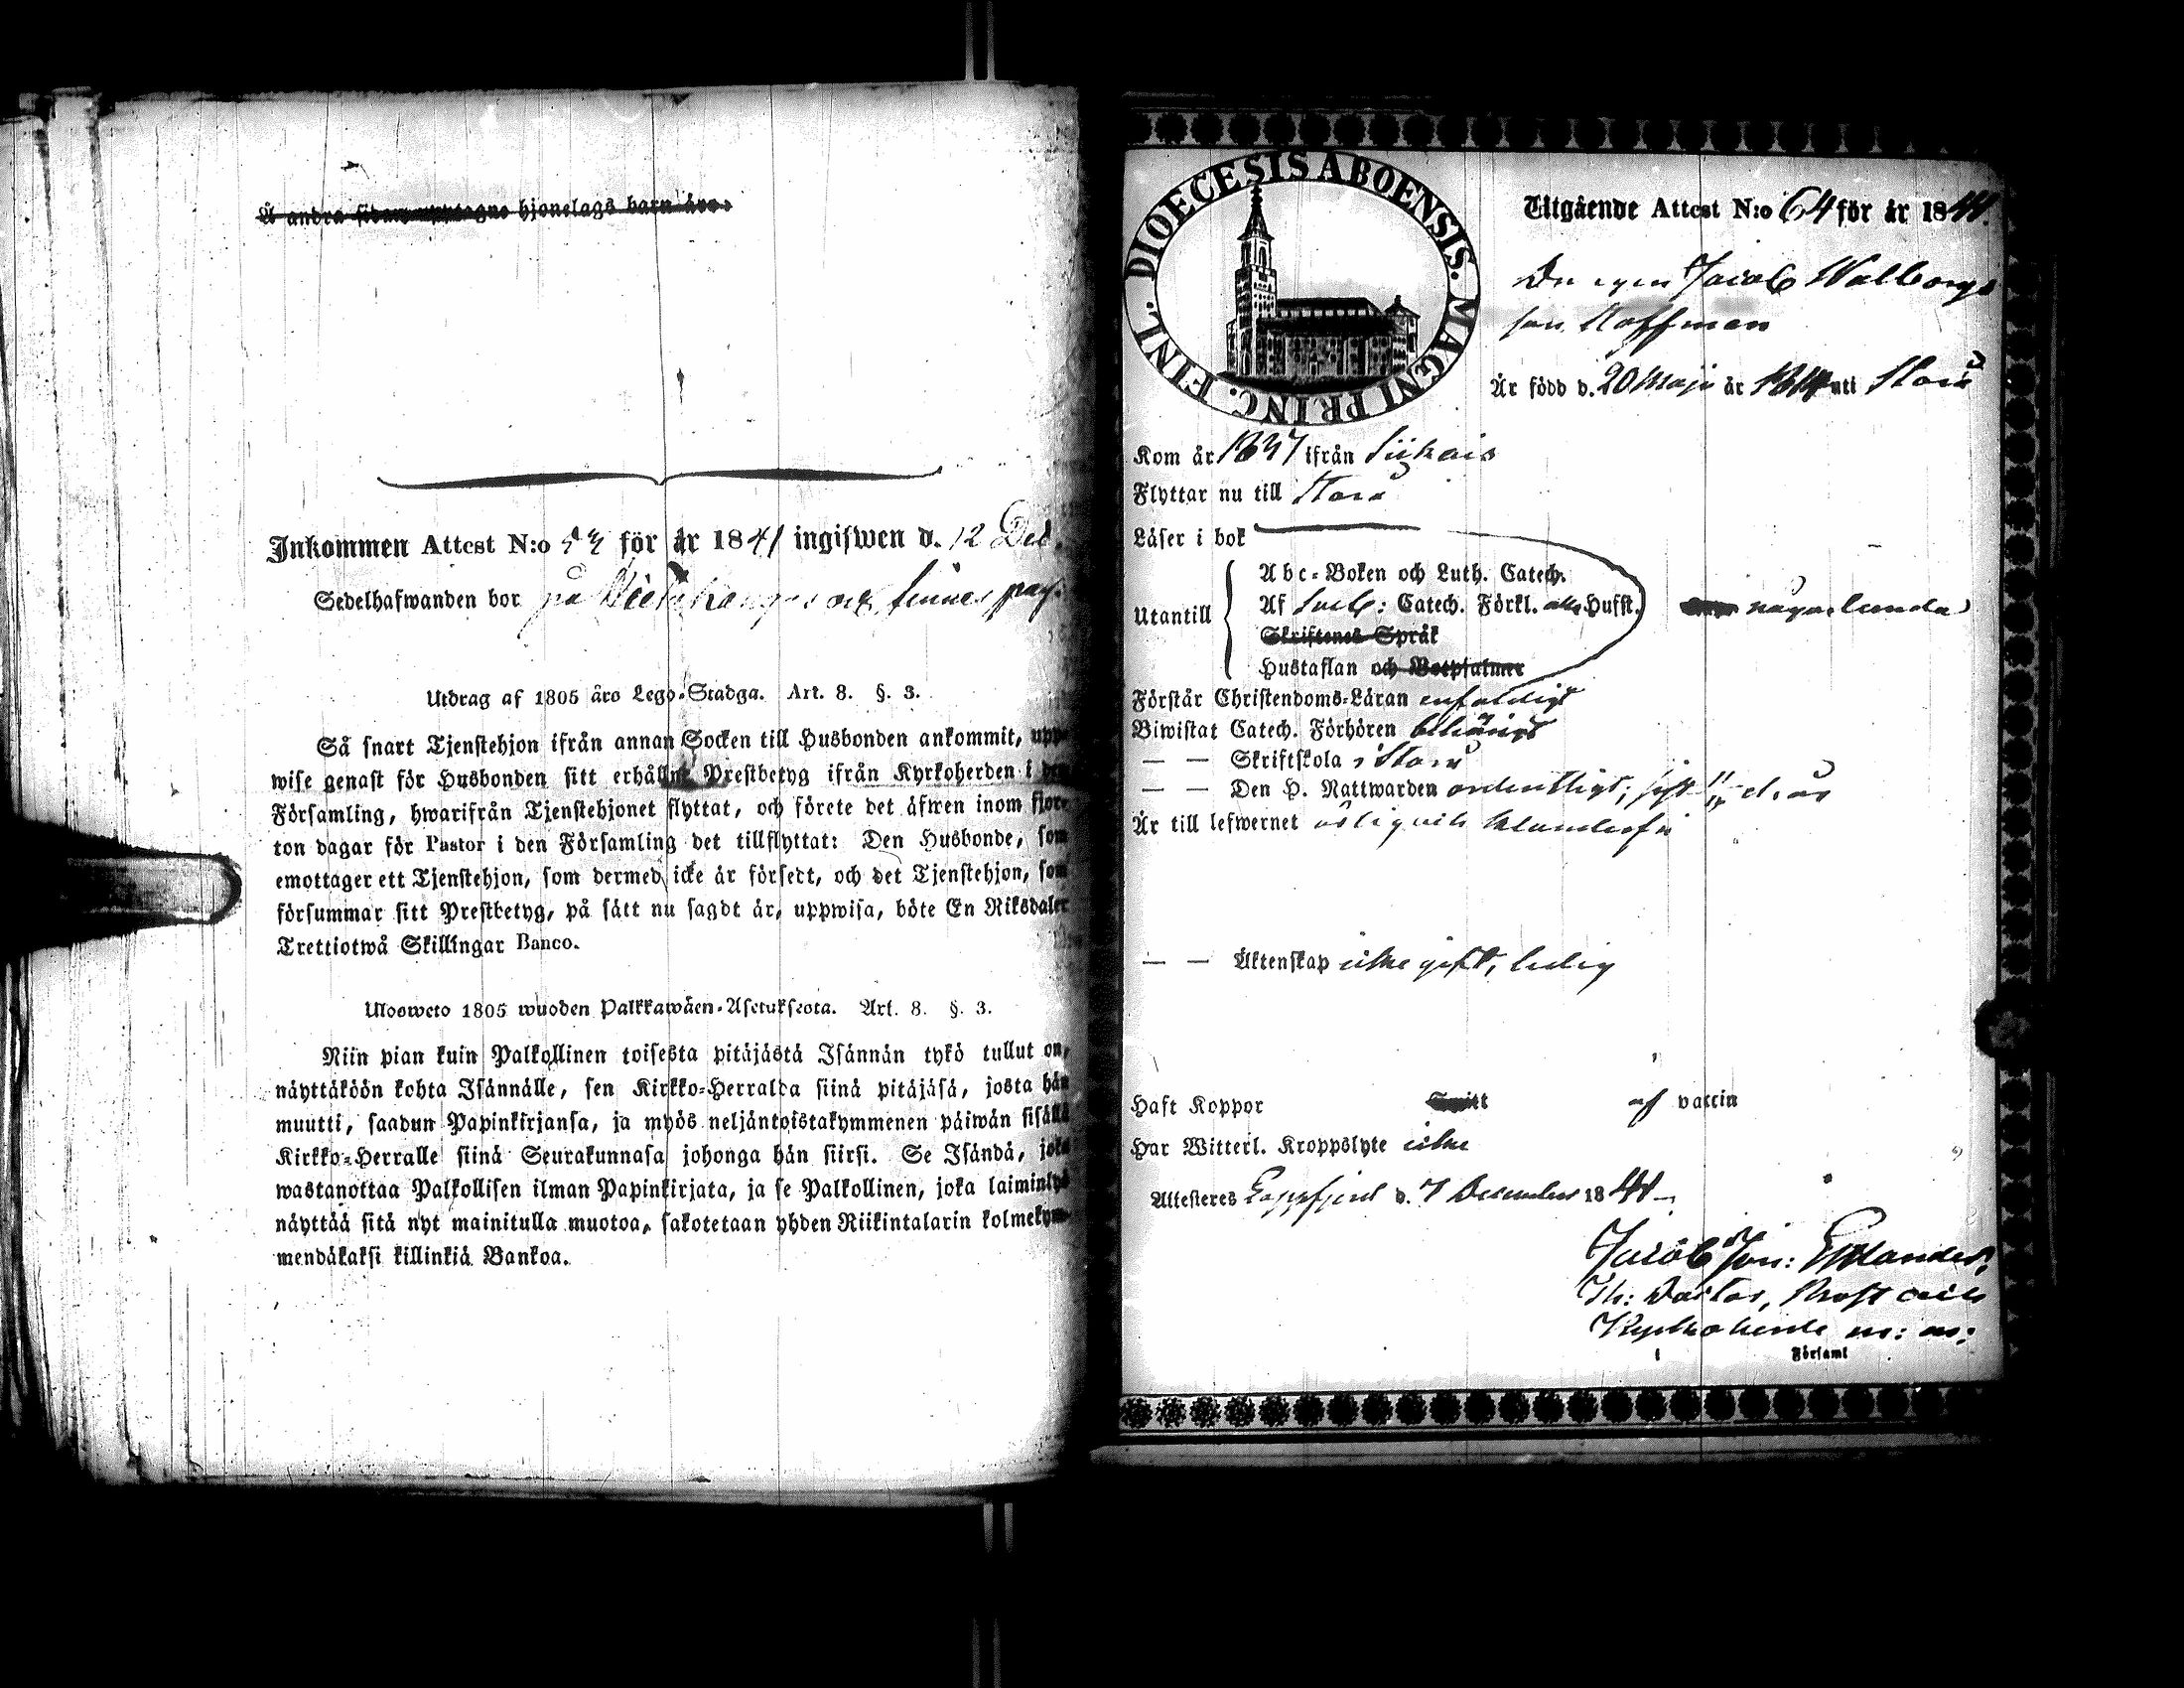 Å andra sidan upptagne hjonelags barn äro:
Inkommen Attest N:o för år 1841 ingifwen d. 12 Dec.
Sedelhafwanden bor på och finnes pag.
Utdrag af 1805 års Lego-Stadga. Art. 8. §. 3.
Så snart Tjenstehjon ifrån annan Socken till Husbonden ankommit, upp-
wise genast för Husbonden sitt erhållne Prestbetyg ifrån Kyrkoherden i den
Församling, hwarifrån Tjenstehjonet flyttat, och förete det äfwen inom fjor-
ton dagar för Pastor i den Församling det tillflyttat: Den Husbonde, som
emottager ett Tjenstehjon, som dermed icke är försedt, och det Tjenstehjon, som
försummar sitt Prestbetyg, på sätt nu sagdt är, uppwisa, böte En Riksdaler
Trettiotwå Skillingar Banco.
Ulosweto 1805 wuoden Palkkawäen-Asetuksesta. Art. 8. §. 3.
Niin pian kuin Palkollinen toisesta pitäjästä Isännän tykö tullut on,
näyttäköön kohta Isännälle, sen Kirkko-Herralda siinä pitäjäsä, josta hän
muutti, saadun Papinkirjansa, ja myös neljäntoistakymmenen päiwän sisällä
Kirkko-Herralle siinä Seurakunnasa johonga hän siirsi. Se Isändä, joka
wastanottaa Palkollisen ilman Papinkirjata, ja se Palkollinen, joka laiminlyö
näyttää sitä nyt mainitulla muotoa, sakotetaan yhden Riikintalarin kolmekym-
mendäkaksi killinkiä Bankoa.
DIOECESIS ABOENSIS. MAGNI PRINC. FINL.
Utgående Attest N:o 64 för år 1841.
Drengen Jacob Walborgs
son Koffman
Är född d. 20 Maji år 1814 uti
Kom år 1837 ifrån Siikais
Flyttar nu till
Läser i bok
Utantill
Abc-Boken och Luth. Catech.
Af Sveb: Catech. Förkl. alla Hufst. någorlunda
Skriftenes Språk
Hustaflan och Botpsalmer
Förstår Christendoms-Läran enfaldigt
Biwistat Catech. Förhören
— — Skriftskola i
— — Den H. Nattwarden ordentligt; sist d. år
Är till lefwernet och klanderfri
— — Äktenskap icke gift, ledig
Haft Koppor af vaccin
Har Witterl. Kroppslyte icke
Attesteres Lappfjerd d. 7 December 1841
Jacob Jon: Estlander,
Th: Doctor, Prost och
Kyrkoherde m: m:
i Församl